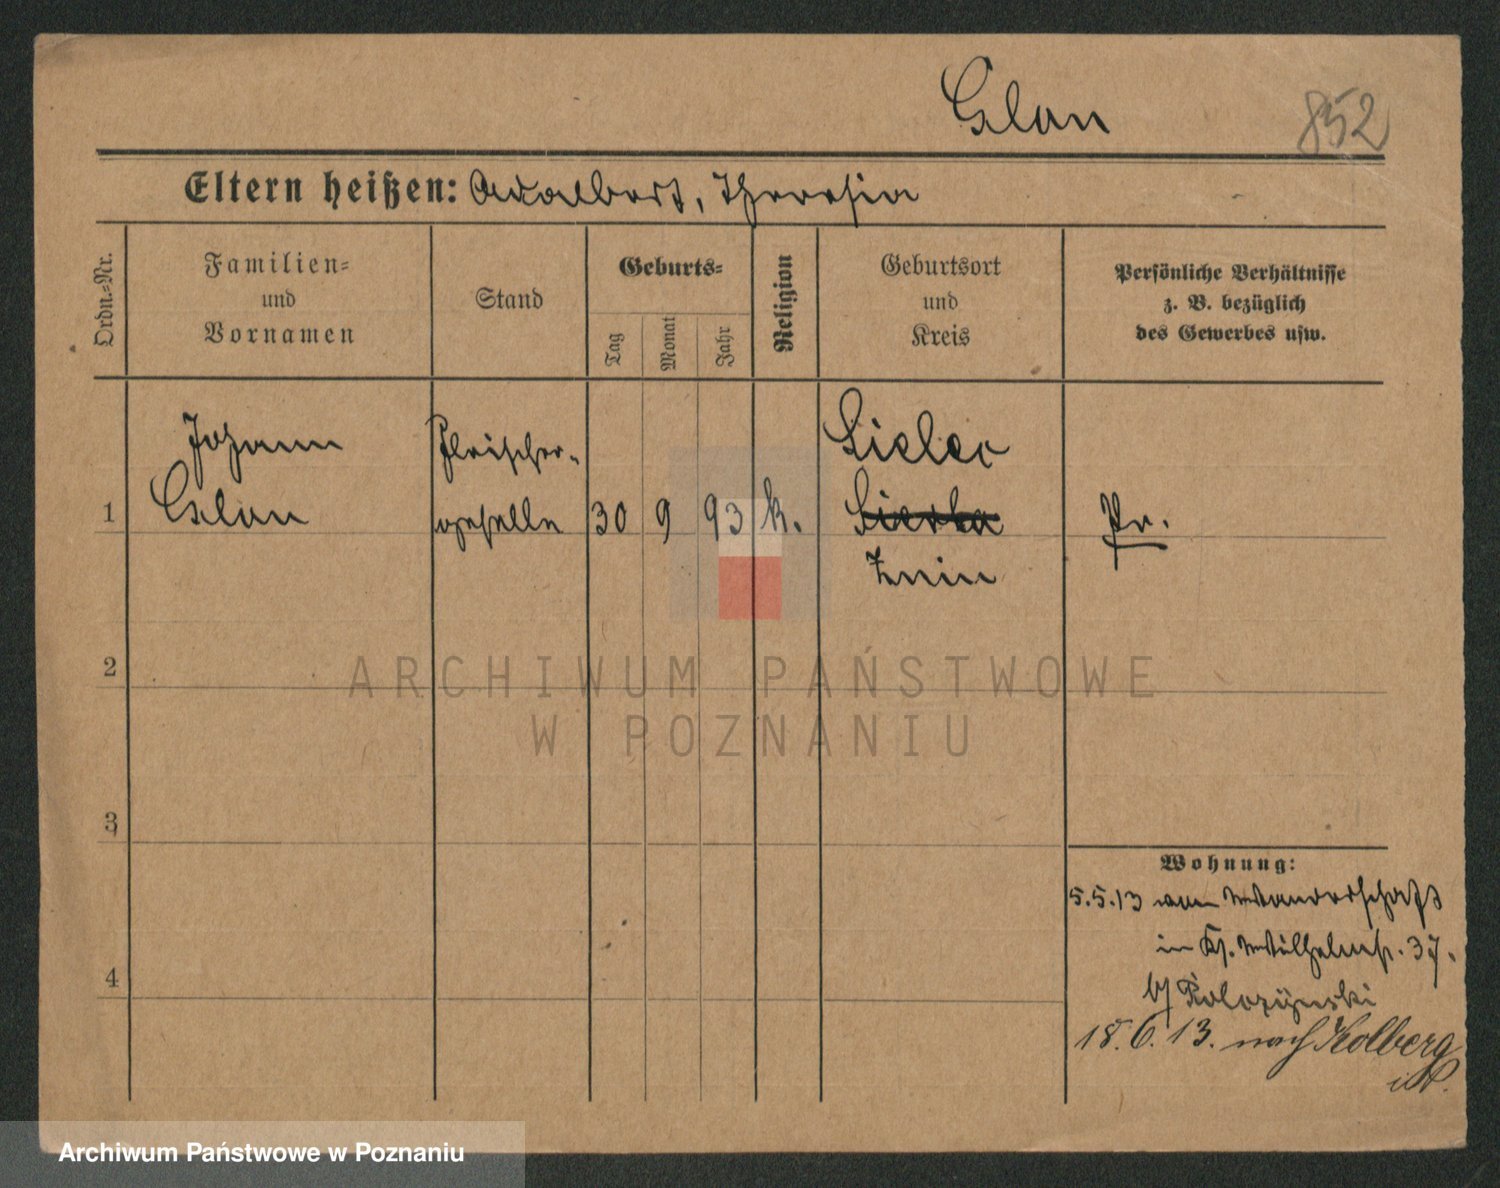 Cslan
852
Eltern heißen: Adalbert, Theresia
Ordn.-Nr.
Familien-
und
Vornamen
Stand
Geburts-
Tag
Monat
Jahr
Religion
Geburtsort
und
Kreis
Persönliche Verhältnisse
z. B. bezüglich
des Gewerbes usw.
Johann
Cslan
Fleischer-
geselle
1
30 9 93 k.
Sielec
Znin
Pr.
2
3
4
Wohnung:
5.5.13 von Wanderschaft
in Kl. Wilhelmstr. 37.
b/
18.6.13. nach Kolberg
i/P.
ARCHIWUM PAŃSTWOWE
W POZNANIU
Archiwum Państwowe w Poznaniu